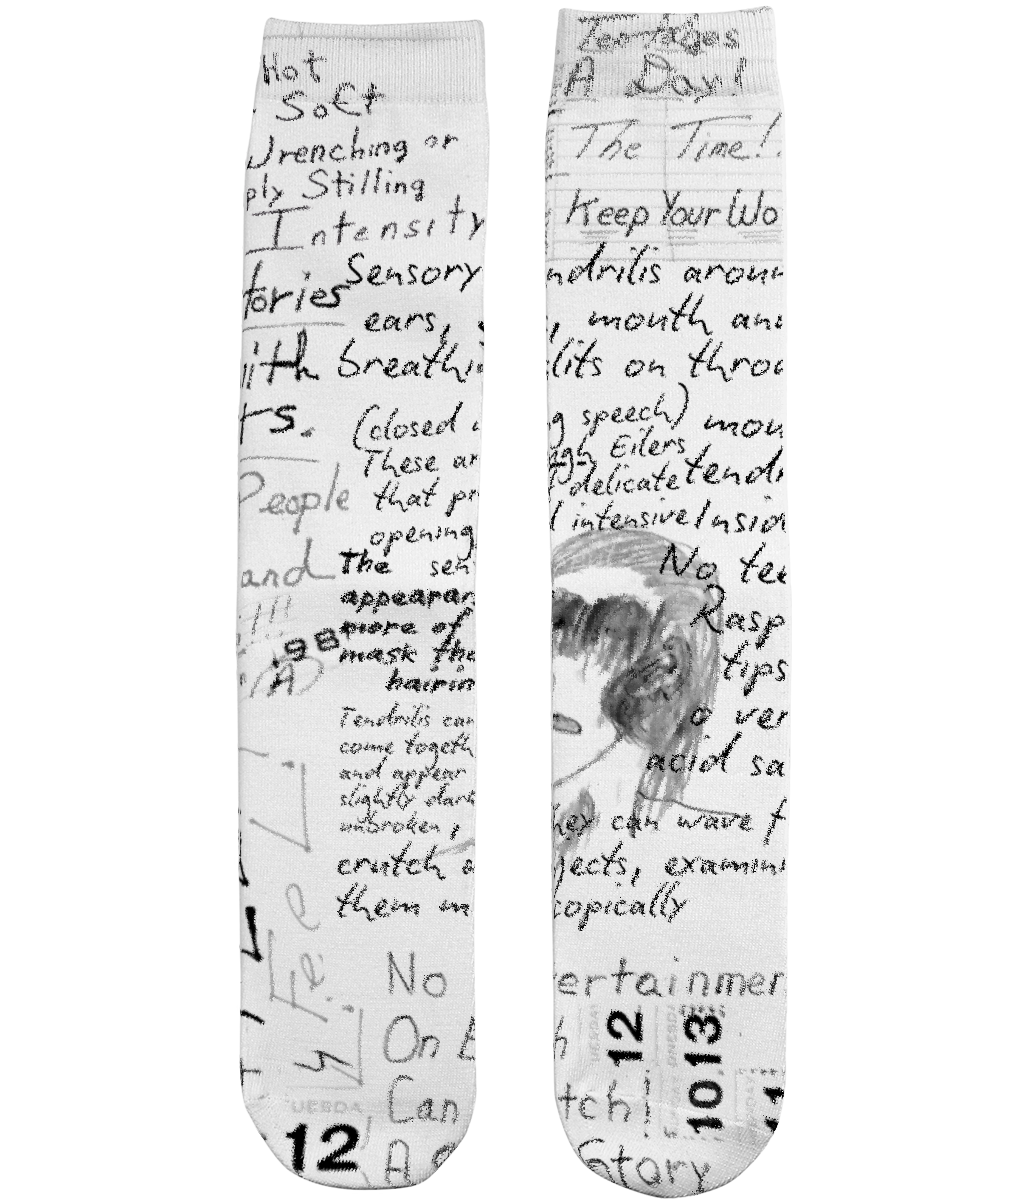 Hot
Soft
Wrenching or
ply Stilling
Intensity
tories
Sensory
ears,
with
breathi
rs.
(closed
These ar
People
that pr
opening
and
The sen
appearan
more of
.98
mask the
A
hairin
Tendrilis can
come togeth
and appear
slightly dark
unbroken,
crutch a
them m
Feel
No
On E
Can
UESDA
12
A
Teenages
A Day!
The Time!.
Keep Your Wo
ndrilis aroun
, mouth and
lits on throu
g speech) mou
ugh Eilers
delicate tendr
l intensive Insid
No tee
Rasp
tips
o ver
acid sa
hey can wave f
jects, examini
copically
ertainmen
h
12
10.13
11
tch!
Story